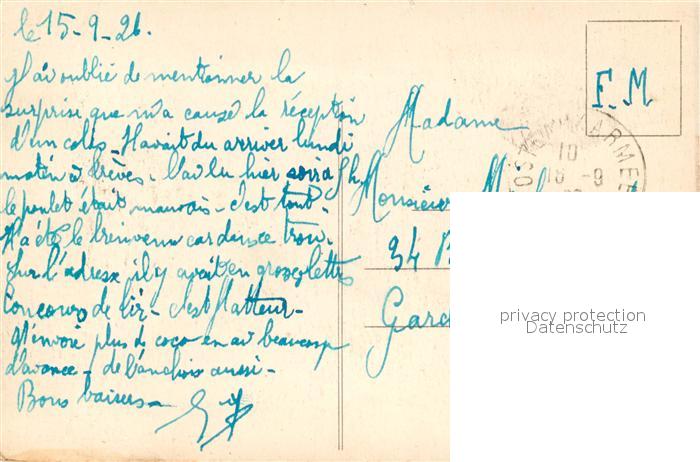 le 15-9-26.
J'ai oublié de mentionner la
surprise que m'a causé la réception
d'un colis. Il avait du arriver lundi
matin à Trèves. l'ai lu hier soir à 9 h.
le poulet était mauvais - c'est tout.
Il a été le bienvenu car dans ce trou.
Sur l'adresse il y avait en grosses lettres
Concours de tir - c'est flatteur -
N'envoie plus de coco en ai beaucoup
d'avance - de l'anchois aussi -
Bons baisers -
F.M
Madame
Monsieur
34
Gare
POST ARMEE
10
16 -9
privacy protection
Datenschutz